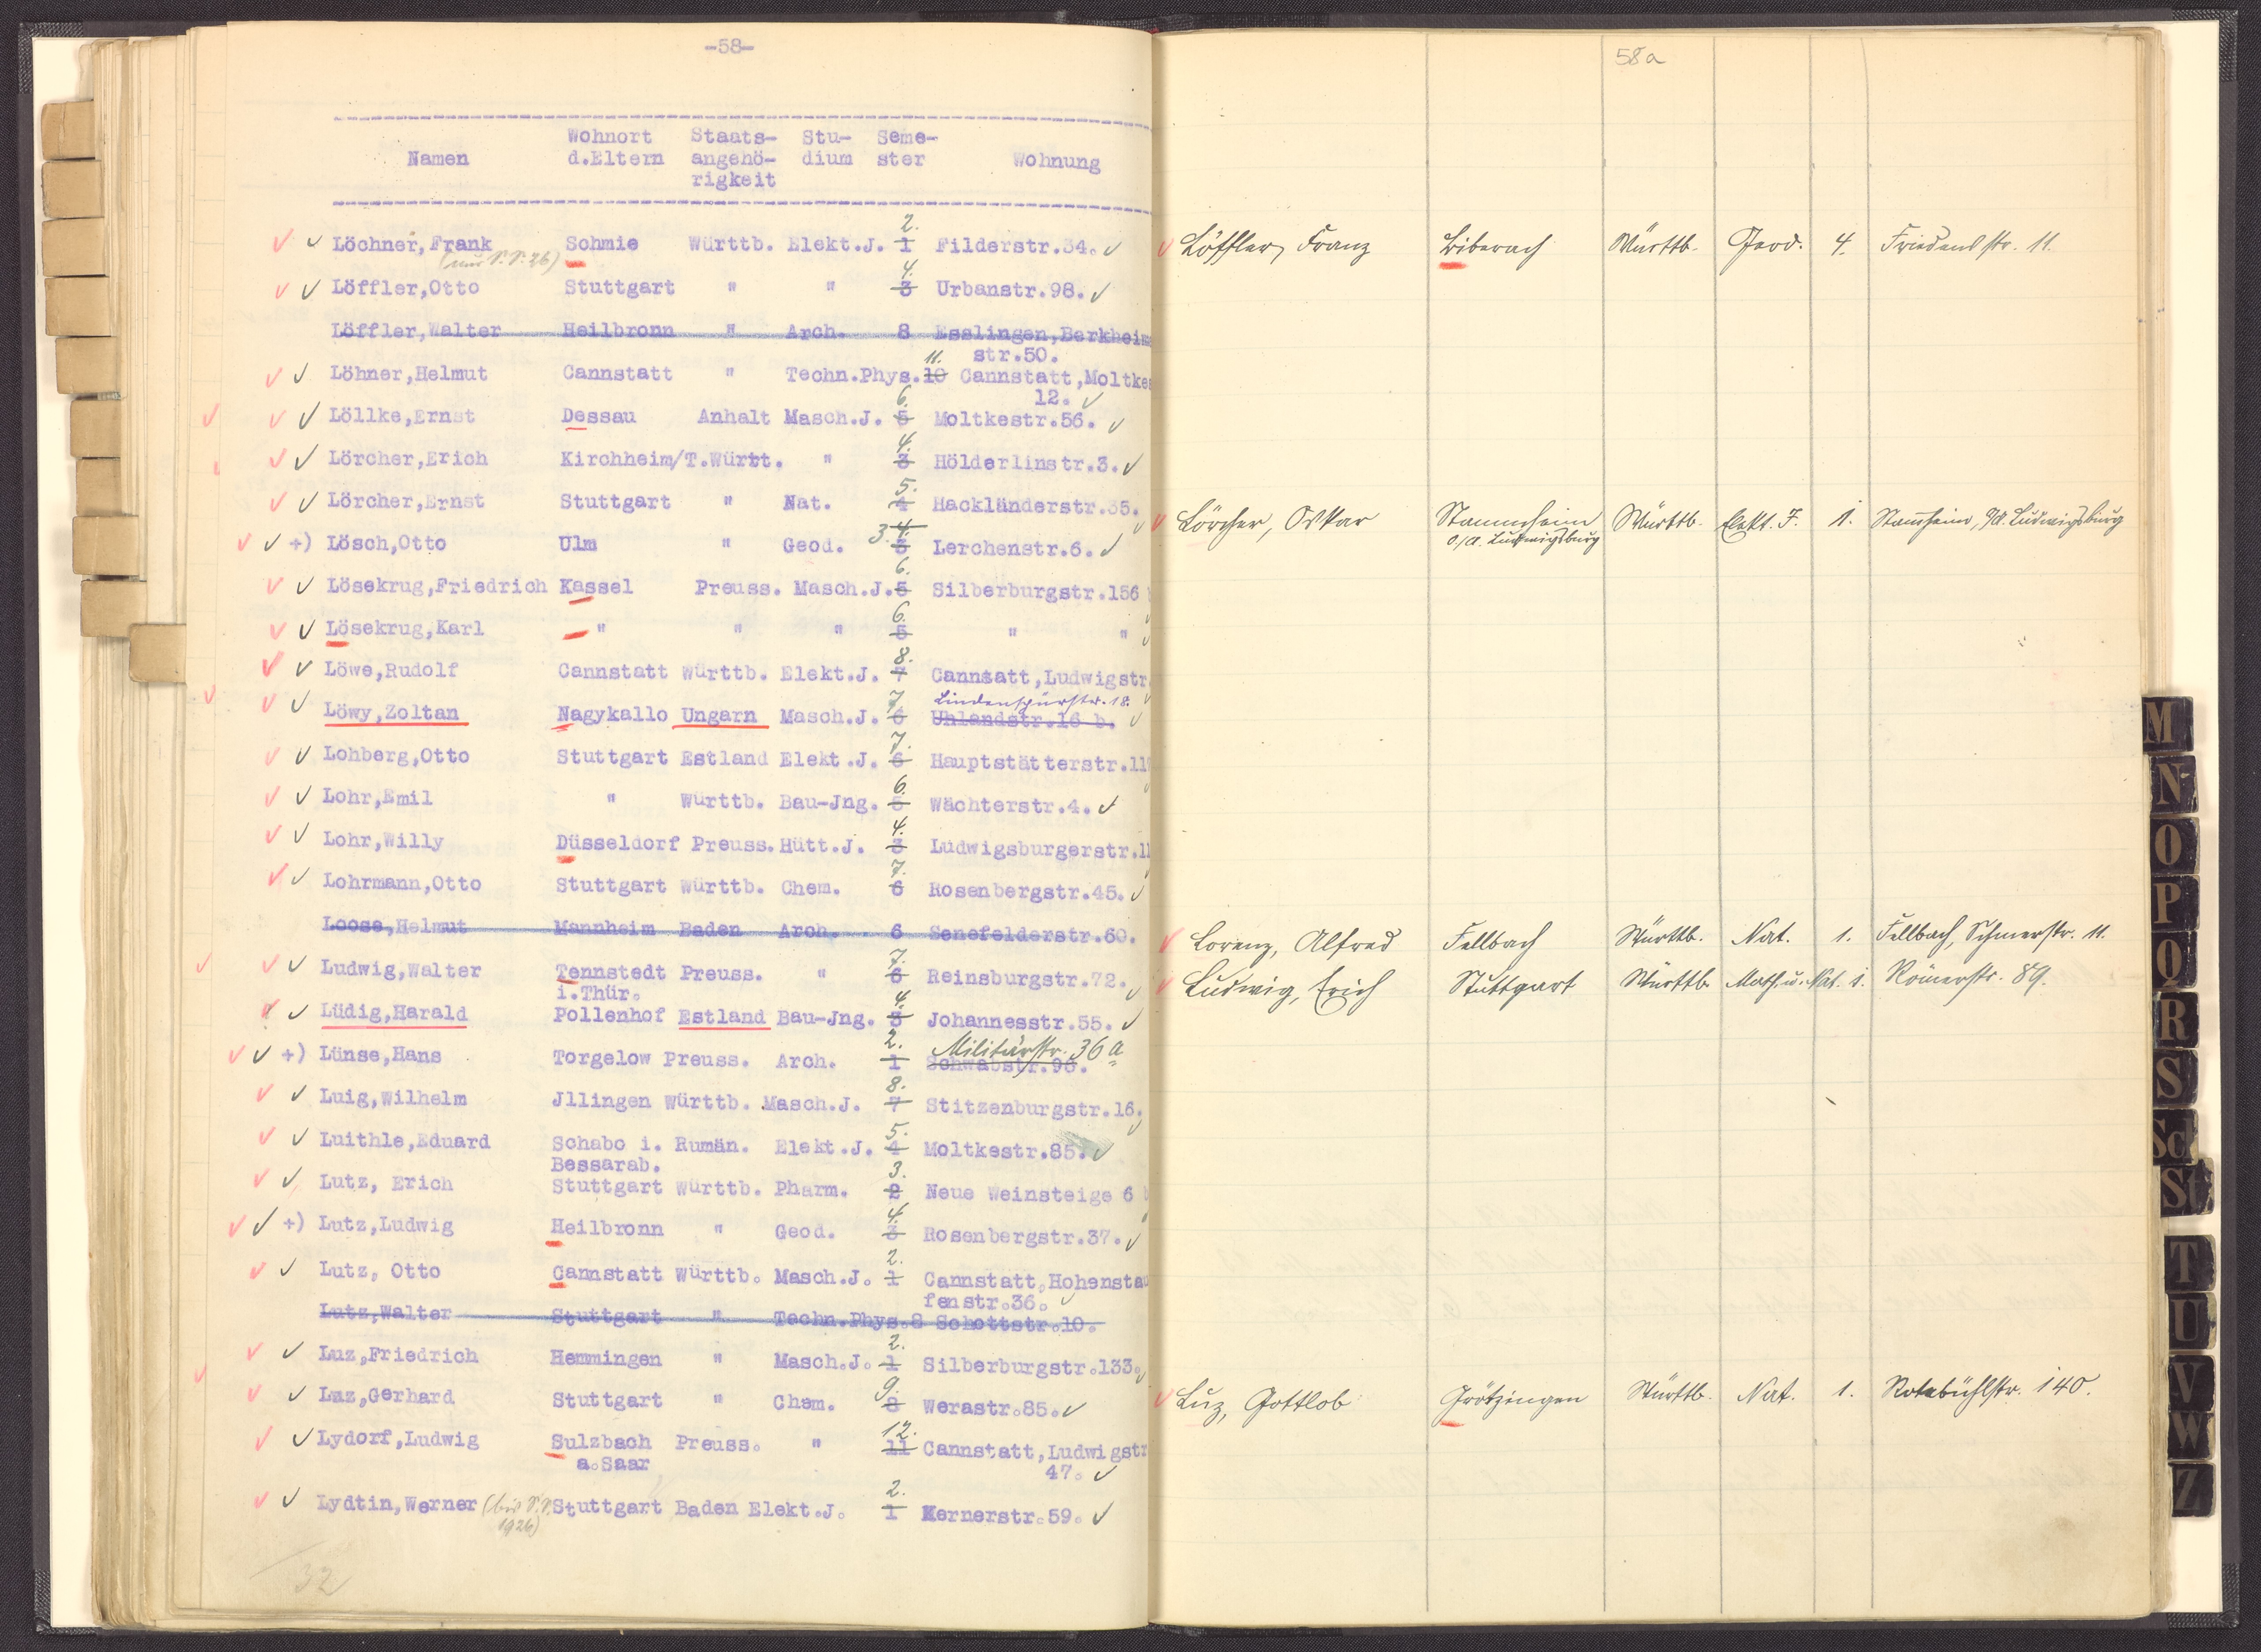 -58-
Wohnort Staats- Stu- Seme-
Namen d.Eltern angehö- dium ster Wohnung
rigkeit
2.
Löchner,Frank Schmie Württb. Elekt.J. 1 Filderstr.34.
(nur S.S.26)
4.
Löffler,Otto Stuttgart " " 3 Urbanstr.98.
Löffler,Walter Heilbronn " Arch. 8 Esslingen,Berkheim
str.50.
11.
Löhner,Helmut Cannstatt " Techn.Phys.10 Cannstatt,Moltkes
12.
6.
Löllke,Ernst Dessau Anhalt Masch.J. 5 Moltkestr.56.
4.
Lörcher,Erich Kirchheim/T.Württ. " 3 Hölderlinstr.3.
5.
Lörcher,Ernst Stuttgart " Nat. 4 Hackländerstr.35.
3. 4.
+) Lösch,Otto Ulm " Geod. 3 Lerchenstr.6.
6.
Lösekrug,Friedrich Kassel Preuss. Masch.J.5 Silberburgstr.156
6.
Lösekrug,Karl " " " 5 " "
8.
Löwe,Rudolf Cannstatt Württb. Elekt.J. 7 Cannstatt,Ludwigstr
7. Lindenspürstr. 18.
Löwy,Zoltan Nagykallo Ungarn Masch.J. 6 Uhlandstr.16 b.
7.
Lohberg,Otto Stuttgart Estland Elekt.J. 6 Hauptstätterstr.11
6.
Lohr,Emil " Württb. Bau-Jng. 5 Wächterstr.4.
4.
Lohr,Willy Düsseldorf Preuss.Hütt.J. 3 Ludwigsburgerstr.11
7.
Lohrmann,Otto Stuttgart Württb. Chem. 6 Rosenbergstr.45.
Loose,Helmut Mannheim Baden Arch. 6 Senefelderstr.60.
7.
Ludwig,Walter Tennstedt Preuss. " 6 Reinsburgstr.72.
i.Thür.
4.
Lüdig,Harald Pollenhof Estland Bau-Jng. 3 Johannesstr.55.
2. Militärstr. 36 a
+) Lünse,Hans Torgelow Preuss. Arch. 1 Schwabstr.96.
8.
Luig,Wilhelm Jllingen Württb. Masch.J. 7 Stitzenburgstr.16.
5.
Luithle,Eduard Schabo i. Rumän. Elekt.J. 4 Moltkestr.85.
Bessarab.
3.
Lutz, Erich Stuttgart Württb. Pharm. 2 Neue Weinsteige 6
4.
+) Lutz,Ludwig Heilbronn " Geod. 3 Rosenbergstr.37.
2.
Lutz, Otto Cannstatt Württb. Masch.J. 1 Cannstatt,Hohenstau
fenstr.36.
Lutz,Walter Stuttgart " Techn.Phys.8 Schottstr.10.
2.
Luz,Friedrich Hemmingen " Masch.J. 1 Silberburgstr.133.
9.
Luz,Gerhard Stuttgart " Chem. 8 Werastr.85.
12.
Lydorf,Ludwig Sulzbach Preuss. " 11 Cannstatt,Ludwigstr
a.Saar 47.
2.
Lydtin,Werner (bis S.S. Stuttgart Baden Elekt.J. 1 Kernerstr.59.
1926)
32
58a
Löffler, Franz Biberach Württb. Geod. 4. Friedenstr. 11.
Lörcher, Oskar Stammheim Württb. Elekt. J. 1. Stammheim, O/A. Ludwigsburg
O/A. Ludwigsburg
Lorenz, Alfred Fellbach Württb. Nat. 1. Fellbach, Schmerstr. 11.
Ludwig, Erich Stuttgart Württb. Math. u. Nat. 1. Römerstr. 89.
Luz, Gottlob Grötzingen Württb. Nat. 1. Rotebühlstr. 140.
M
N
O
P
Q
R
S
Sch
St
T
U
V
W
Z